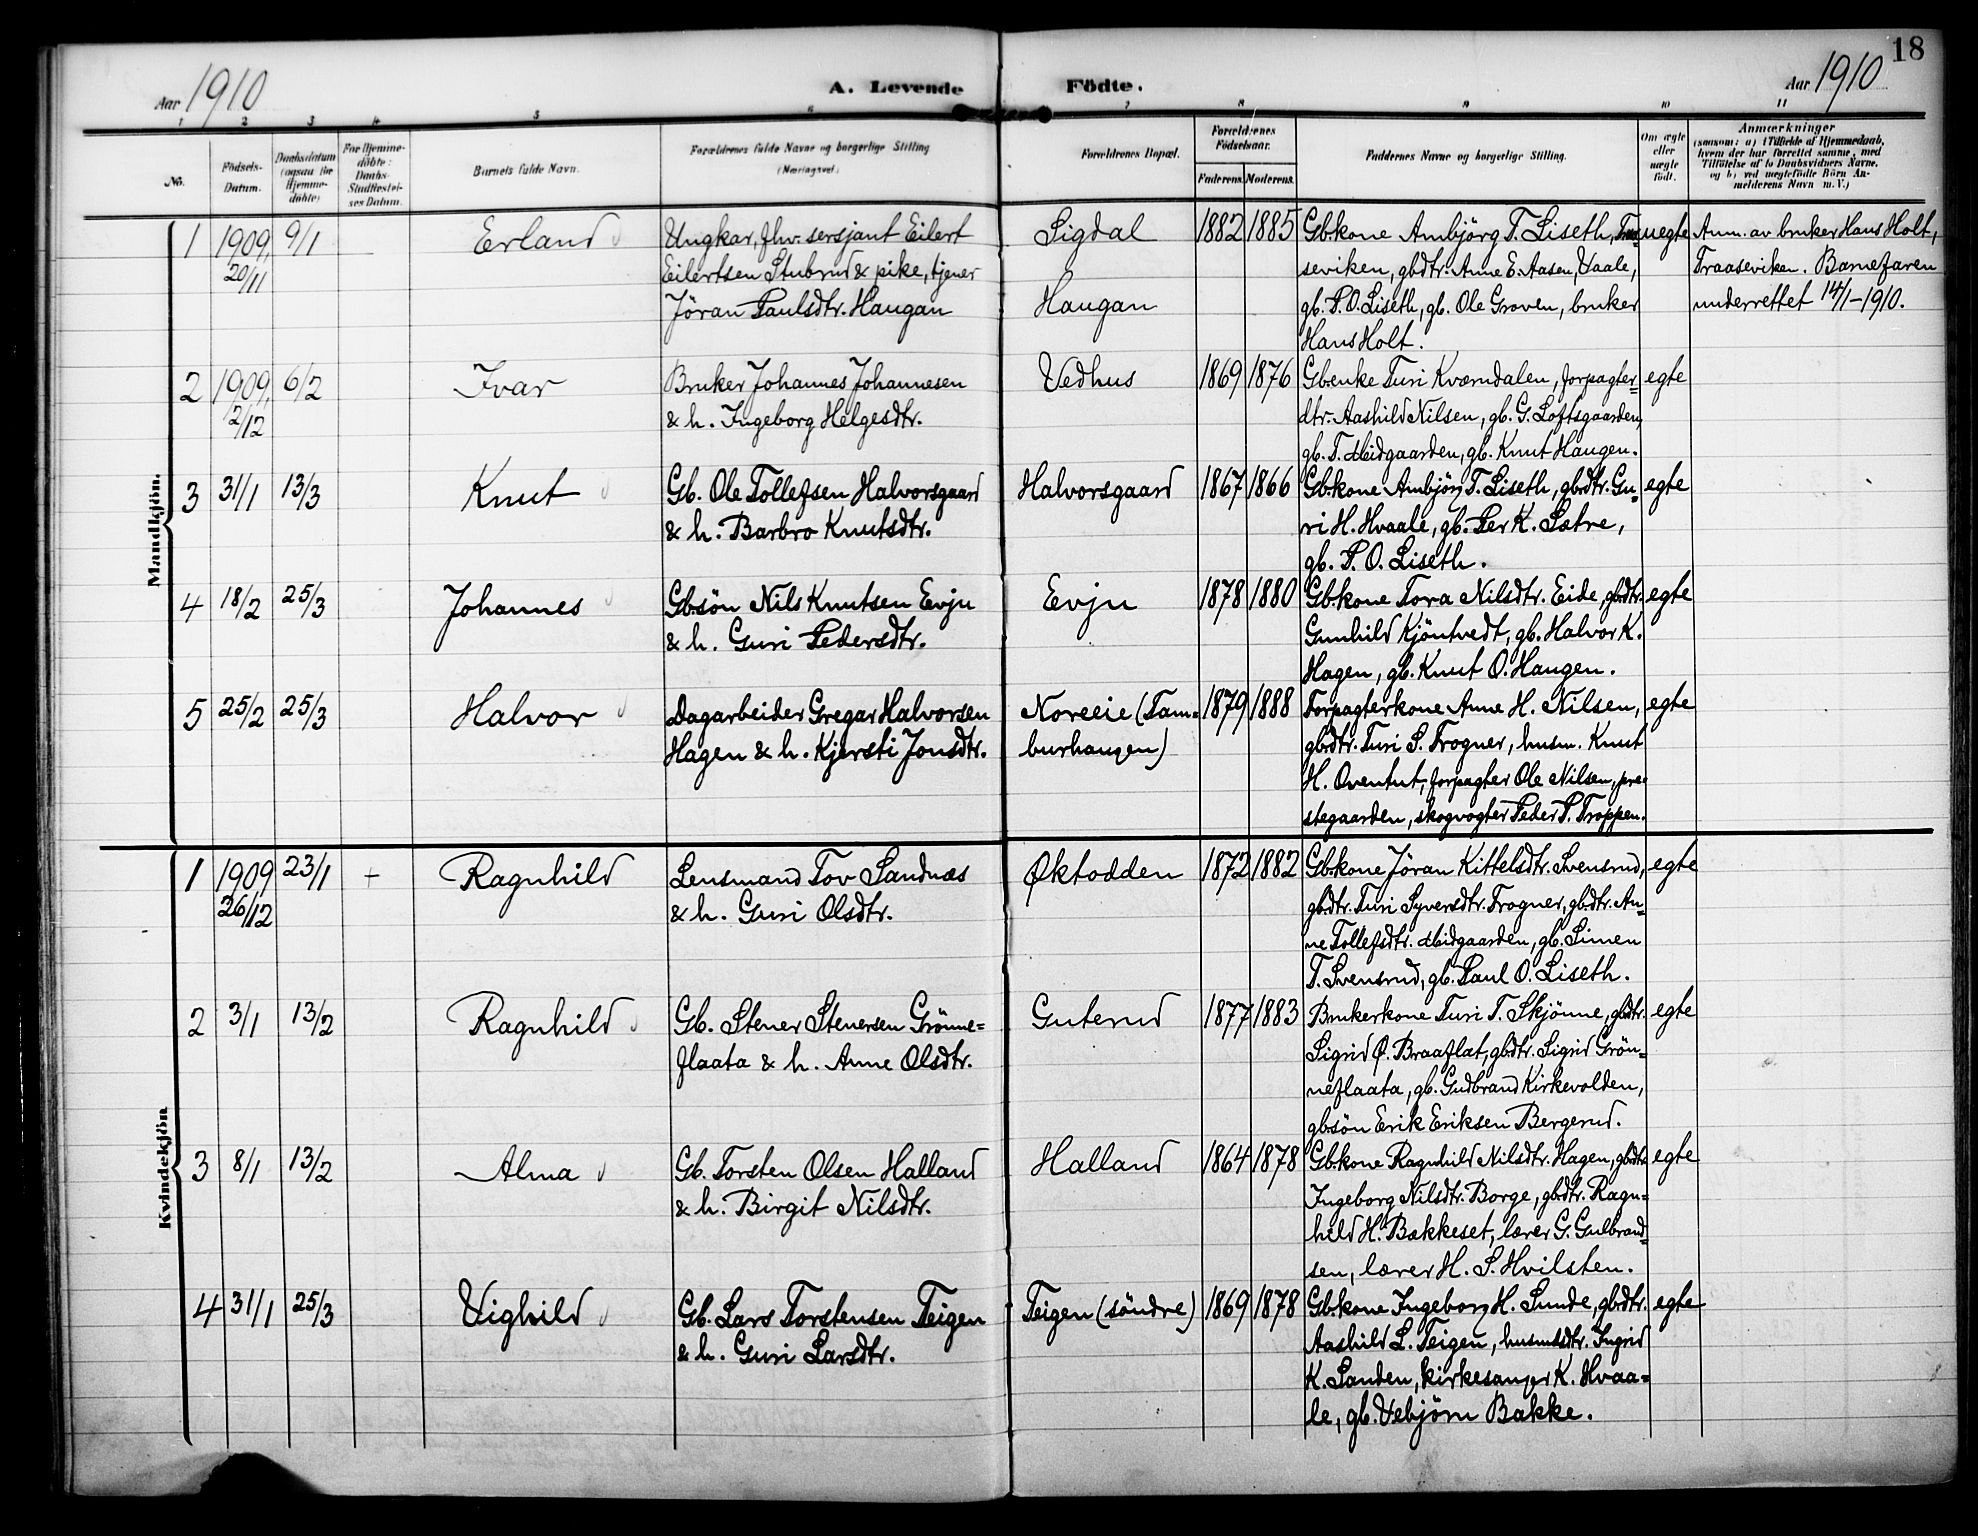 18
Aar 1910
A. Levende Födte.
Aar 1910
1 2 3 4 5 6 7 8 9 10 11
No.
Födsels-
Datum.
Daabsdatum
(ogsaa for
Hjemme-
döbte)
For Hjemme-
döbte:
Daabs-
Stadfæstel-
ses Datum.
Barnets fulde Navn.
Forældrenes fulde Navne og borgerlige Stilling
(Næringsvei)
Forældrenes Bopæl.
Forældrenes
Födselsaar.
Faderens. Moderens.
Faddernes Navne og borgerlige Stilling.
Om ægte
eller
uægte
født.
Anmærkninger
(saasom: a) i Tilfælde af Hjemmedaab,
hvem der har forrettet samme, med
Tilføielse af to Daabsvidners Navne,
og b) ved uægtefödte Börn An-
melderens Navn m. V.)
Mandkjön.
1 1909, 20/11 9/1 Erland
Ungkar, fhv. sersjant Eilert
Eilertsen Stubrud & pike, tjener
Jöran Paulsdtr. Haugan
Sigdal
Haugan
1882 1885
Gb.kone Ambjörg T. Liseth, Traa-
seviken, gbdtr. Anne E. Aasen, Vaale,
gb. P. O. Liseth, gb. Ole Groven, bruker
Hans Holt.
uegte
Anm. av bruker Hans Holt,
Traaseviken. Barnefaren
underrettet 14/1-1910.
2 1909, 2/12 6/2 Ivar
Bruker Johannes Johannesen
& h. Ingeborg Helgesdtr.
Vedhus
1869 1876
Gb.enke Turi Kværndalen, forpagter-
dtr. Aashild Nilsen, gb. G. Loftsgaarden,
gb. T. Midgaarden, gb. Knut Haugen.
egte
3 31/1 13/3 Knut
Gb. Ole Tollefsen Halvorsgaard
& h. Barbro Knutsdtr.
Halvorsgaard
1867 1866
Gb.kone Ambjörg T. Liseth, gbdtr. Gu-
ri H. Hvaale, gb. Per K. Sætre,
gb. P. O. Liseth.
egte
4 18/2 25/3 Johannes
Gb.sön Nils Knutsen Evju
& h. Guri Pedersdtr.
Evju
1878 1880
Gb.kone Tora Nilsdtr. Eide, gbdtr.
Gunhild Kjöntvedt, gb. Halvor K.
Hagen, gb. Knut O. Haugen.
egte
5 25/2 25/3 Halvor
Dagarbeider Gregar Halvorsen
Hagen & h. Kjersti Jonsdtr.
Noreeie (Tam-
burhaugen)
1879 1888
Forpagterkone Anne H. Nilsen,
gbdtr. Turi S. Frogner, husm. Knut
H. Oventut, forpagter Ole Nilsen, pre-
stegaarden, skogvogter Peder P. Troppen.
egte
Kvindekjön
1 1909 26/12 23/1 + Ragnhild
Lensmand Tov Sandnæs
& h. Guri Olsdtr.
Øktodden
1872 1882
Gb.kone Jöran Kittelsdtr. Svensrud,
gbdtr. Turi Syversdtr. Frogner, gbdtr. An-
ne Tollefsdtr. Midgaarden, gb. Simen
T. Svensrud, gb. Paul O. Liseth.
egte
2 3/1 13/2 Ragnhild
Gb. Stener Stenersen Grönne-
flaata & h. Anne Olsdtr.
Guterud
1877 1883
Brukerkone Turi T. Skjönne, gbdtr.
Sigrid Ø. Braaflat, gbdtr. Sigrid Grön-
neflaata, gb. Gudbrand Kirkevolden,
gbsön Erik Eriksen Bergerud.
egte
3 8/1 13/2 Alma
Gb. Torsten Olsen Halland
& h. Birgit Nilsdtr.
Halland
1864 1878
Gb.kone Ragnhild Nilsdtr. Hagen, gbdtr.
Ingeborg Nilsdtr. Borge, gbdtr. Ragn-
hild H. Bakkeset, lærer G. Gulbrand-
sen, lærer H. S. Hvilsten.
egte
4 31/1 25/3 Vighild
Gb. Lars Torstensen Teigen
& h. Guri Larsdtr.
Teigen (söndre)
1869 1878
Gb.kone Ingeborg H. Lunde, gbdtr.
Aashild L. Teigen, husmsdtr. Ingrid
K. Sanden, kirkesanger K. Hvaa-
le, gb. Vebjörn Bakke.
egte